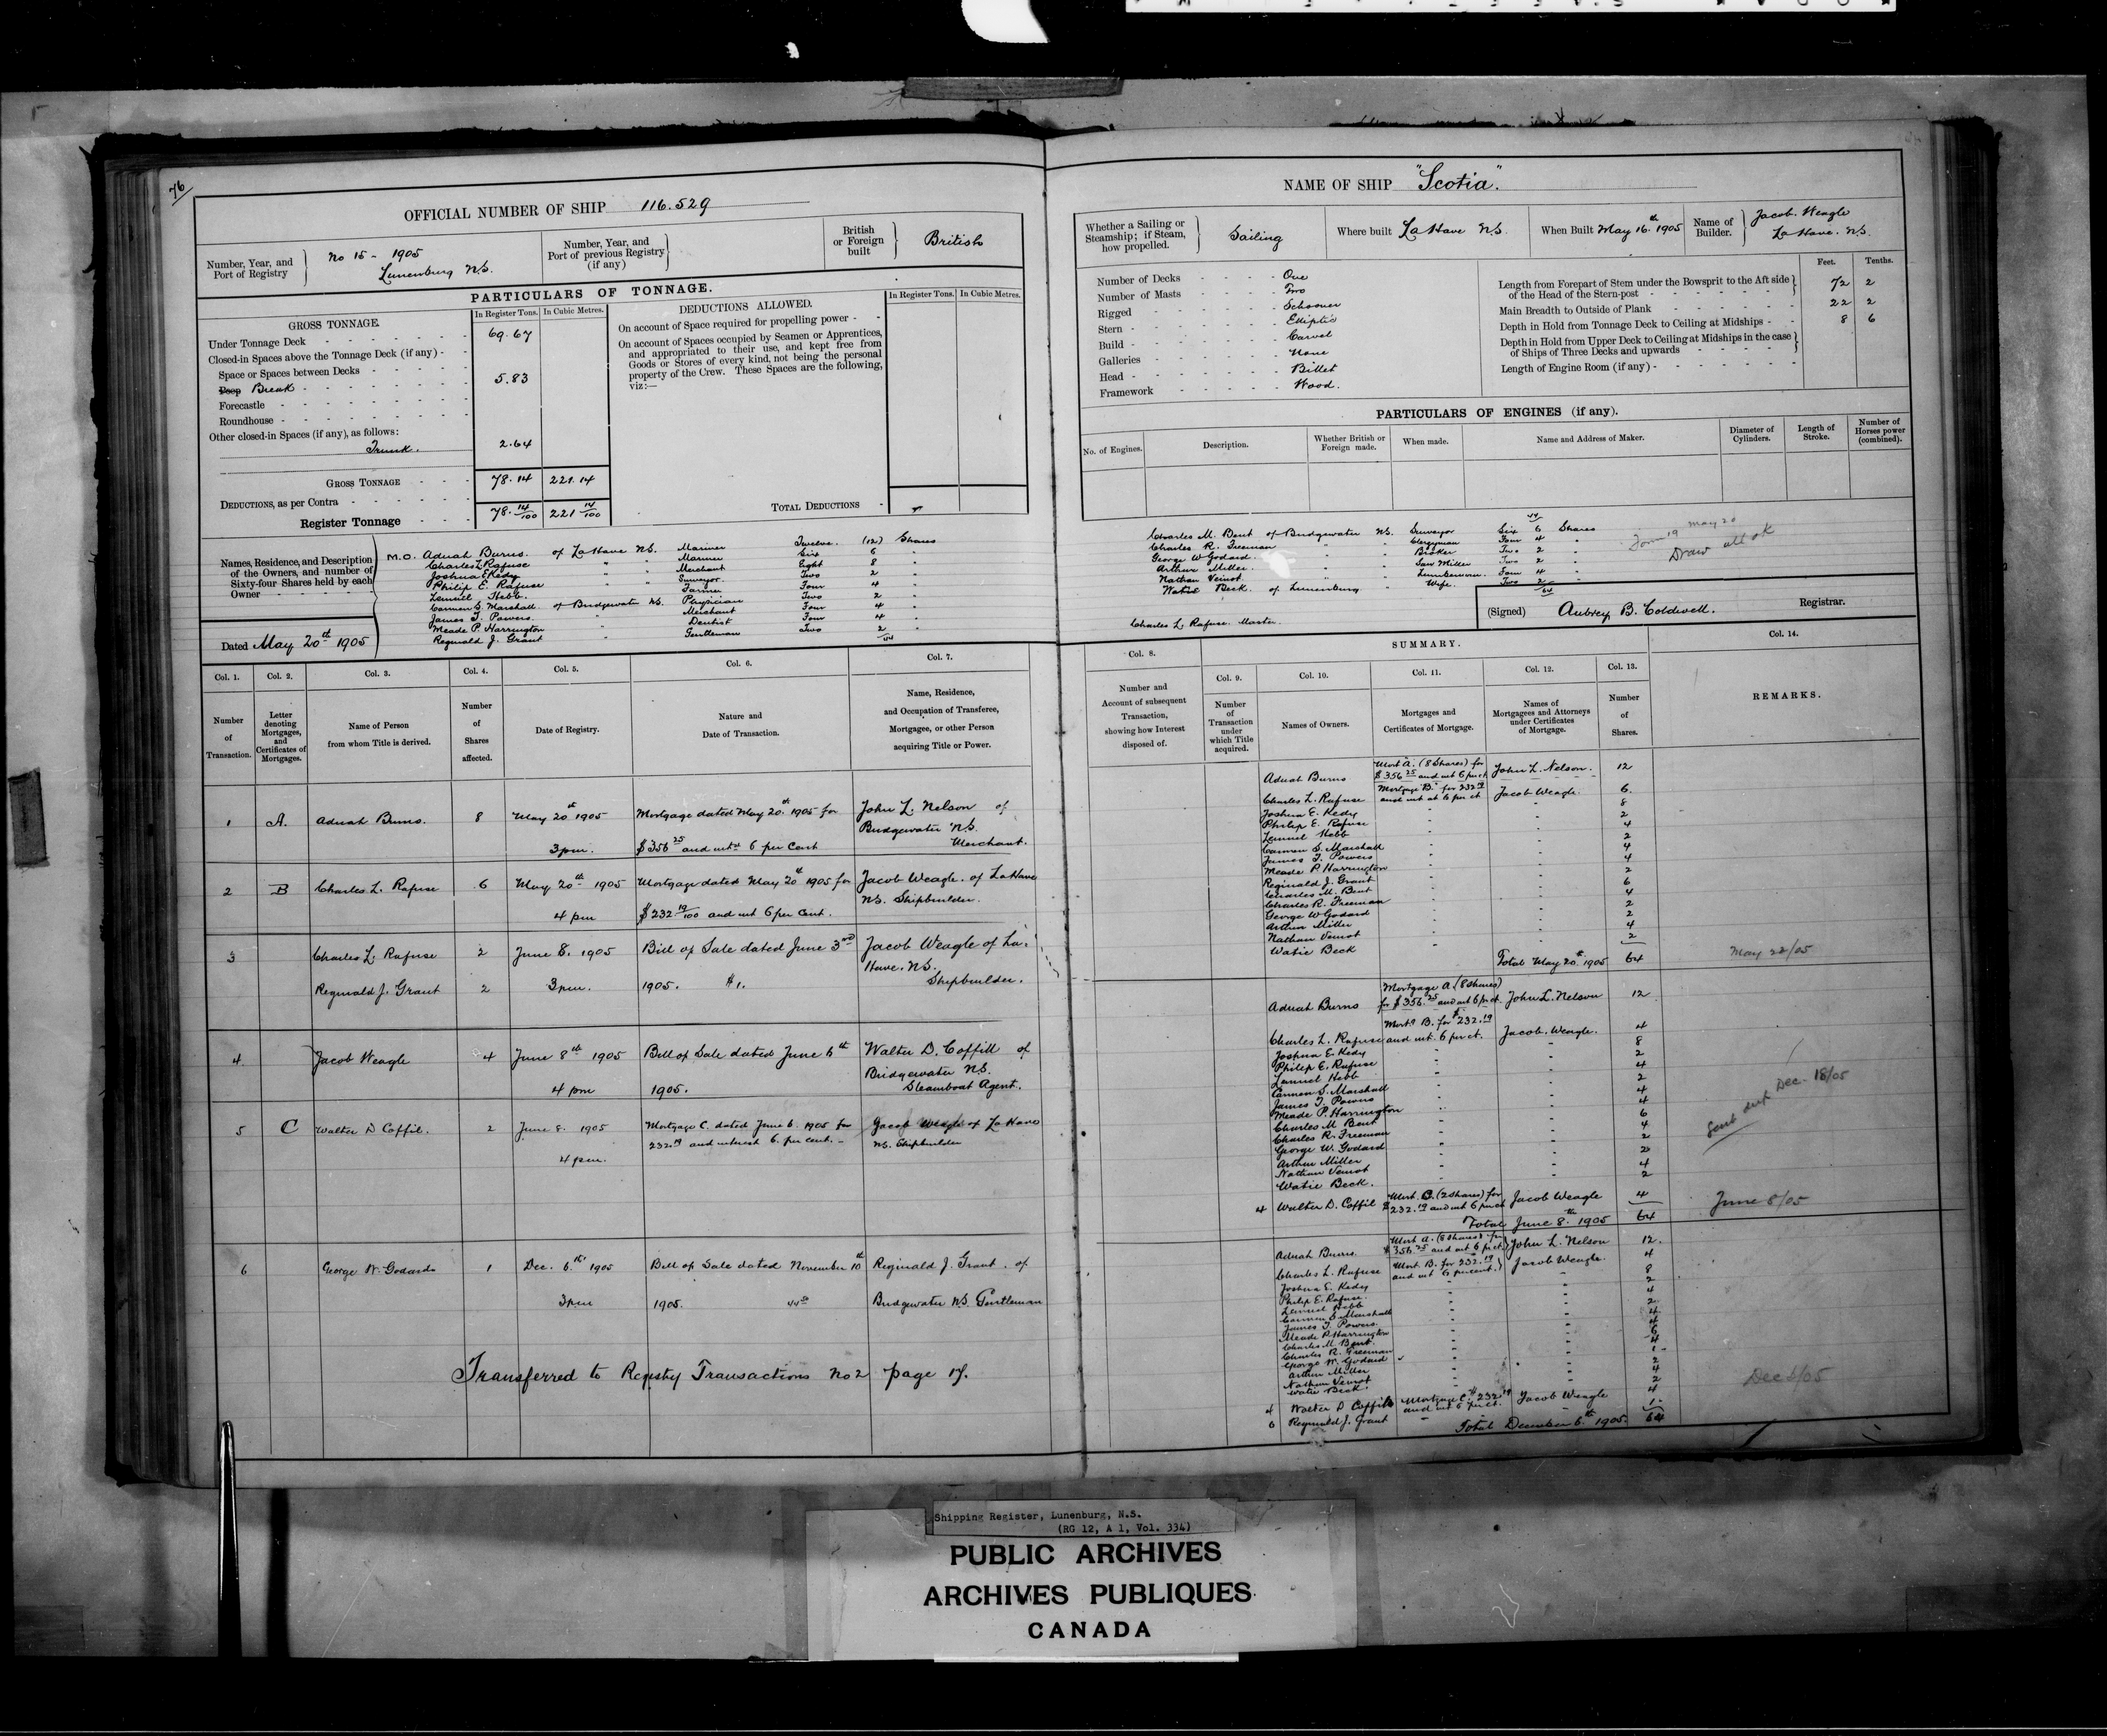 76
OFFICIAL NUMBER OF SHIP 116.529
Number, Year, and Port of Registry
No 15 - 1905
Lunenburg N.S.
Number, Year, and Port of previous Registry (if any)
British or Foreign built
British
PARTICULARS OF TONNAGE.
GROSS TONNAGE.
In Register Tons.
In Cubic Metres.
Under Tonnage Deck 69.67
Closed-in Spaces above the Tonnage Deck (if any) -
Space or Spaces between Decks
Poop Break 5.83
Forecastle
Roundhouse
Other closed-in Spaces (if any), as follows:
Trunk. 2.64
GROSS TONNAGE 78.14 221.14
DEDUCTIONS, as per Contra
Register Tonnage 78.14/100 221 14/100
DEDUCTIONS ALLOWED.
In Register Tons.
In Cubic Metres.
On account of Space required for propelling power -
On account of Spaces occupied by Seamen or Apprentices,
and appropriated to their use, and kept free from
Goods or Stores of every kind, not being the personal
property of the Crew. These Spaces are the following,
viz:—
TOTAL DEDUCTIONS
Names, Residence, and Description
of the Owners, and number of
Sixty-four Shares held by each
Owner
M.O. Adnah Burns. of LaHave N.S. Mariner Twelve. (12) Shares
Charles L Rafuse " " Mariner Six 6 "
Joshua E Kedy " " Merchant Eight 8 "
Philip E. Rafuse " " Surveyor Two 2 "
Lemuel Hebb. Farmer Four 4 "
Carmen S. Marshall of Bridgewater N.S. Physician Two 2 "
James T. Powers. Merchant Four 4 "
Meade P. Harrington " Dentist Four 4 "
Reginald J. Grant " Gentleman Two 2 "
44
Dated May 20th 1905
NAME OF SHIP "Scotia".
Whether a Sailing or Steamship; if Steam, how propelled.
Sailing
Where built LaHave N.S.
When Built May 16th 1905
Name of Builder.
Jacob. Weagle
LaHave. N.S.
Number of Decks One
Number of Masts Two
Rigged Schooner
Stern Elliptic
Build Carvel
Galleries None
Head Billet
Framework Wood.
Feet. Tenths.
Length from Forepart of Stem under the Bowsprit to the Aft side
of the Head of the Stern-post 72 2
Main Breadth to Outside of Plank 22 2
Depth in Hold from Tonnage Deck to Ceiling at Midships - 8 6
Depth in Hold from Upper Deck to Ceiling at Midships in the case
of Ships of Three Decks and upwards
Length of Engine Room (if any) -
PARTICULARS OF ENGINES (if any).
No. of Engines.
Description.
Whether British or Foreign made.
When made.
Name and Address of Maker.
Diameter of Cylinders.
Length of Stroke.
Number of Horses power (combined).
44
Charles M. Bent of Bridgewater N.S. Surveyor Six 6 Shares
Charles R. Freeman " " Clergyman Four 4 "
George W Godard. " " Broker Two 2 "
Arthur Miller. " " Saw Miller Two 2 "
Nathan Veinot. " " Lumberman. Four 4 "
Watie Beck. of Lunenburg " Wife. Two 2 "
64
May 20
Form 19
Draw all ok
Charles L. Rafuse. Master.
(Signed) Aubrey B. Coldwell. Registrar.
Col. 1. Number of Transaction.
Col. 2. Letter denoting Mortgages, and Certificates of Mortgages.
Col. 3. Name of Person from whom Title is derived.
Col. 4. Number of Shares affected.
Col. 5. Date of Registry.
Col. 6. Nature and Date of Transaction.
Col. 7. Name, Residence, and Occupation of Transferee, Mortgagee, or other Person acquiring Title or Power.
1 A. Adnah Burns. 8 May 20th 1905 Mortgage dated May 20th 1905 for John L. Nelson of
Bridgewater N.S.
3pm. $356 25 and intt 6 per Cent Merchant.
2 B Charles L. Rafuse 6 May 20th 1905 Mortgage dated May 20th 1905 for Jacob Weagle. of LaHave
N.S. Shipbuilder.
4 pm $232 19/100 and int 6 per cent.
3 Charles L. Rafuse 2 June 8. 1905 Bill of Sale dated June 3rd Jacob Weagle of La-
Have. N.S.
Reginald J. Grant 2 3pm. 1905. $1. Shipbuilder.
4. Jacob Weagle 4 June 8th 1905 Bill of Sale dated June 6th Walter D. Coffill of
Bridgewater N.S.
4 pm 1905. Steamboat Agent.
5 C Walter D Coffil. 2 June 8. 1905 Mortgage C. dated June 6. 1905 for Jacob Weagle of LaHave
232.19 and interest 6. per cent. - N.S. Shipbuilder
4 pm.
6 George W. Godard 1 Dec. 6th 1905 Bill of Sale dated November 10th Reginald J. Grant. of
3pm 1905. Bridgewater N.S. Gentleman
Transferred to Registry Transactions No 2 page 17.
SUMMARY.
Col. 8. Number and Account of subsequent Transaction, showing how Interest disposed of.
Col. 9. Number of Transaction under which Title acquired.
Col. 10. Names of Owners.
Col. 11. Mortgages and Certificates of Mortgage.
Col. 12. Names of Mortgagees and Attorneys under Certificates of Mortgage.
Col. 13. Number of Shares.
Col. 14. REMARKS.
Adnah Burns Mort A. (8 Shares) for $356 25 and int 6 per ct John L. Nelson. 12
Charles L. Rafuse Mortgage "B." for 232 19 and int at 6 per ct Jacob Weagle. 6.
Joshua E. Kedy " " 8
Philip E. Rafuse " " 2
Lemuel Hebb " " 4
Carmen S. Marshall " " 2
James T. Powers " " 4
Meade P. Harrington " " 4
Reginald J. Grant " " 2
Charles M. Bent " " 6
Charles R. Freeman " " 4
George W Godard " " 2
Arthur Miller " " 2
Nathan Veinot " " 4
Watie Beck " " 2
Total May 20th 1905 64
May 22/05
Adnah Burns Mortgage A. (8 Shares) for $356.25 and int 6 pr ct. John L. Nelson 12
Charles L. Rafuse Mort. B. for $232.19 and int. 6 per ct. Jacob. Weagle. 4
Joshua E. Kedy " " 8
Philip E. Rafuse " " 2
Lemuel Hebb " " 4
Carmen S. Marshall " " 2
James T. Powers " " 4
Meade P. Harrington " " 4
Charles M Bent " " 6
Charles R. Freeman " " 4
George W. Godard " " 2
Arthur Miller " " 2
Nathan Veinot " " 4
Watie Beck. " " 2
4 Walter D. Coffil Mort. C. (2 shares) for $232.19 and int 6 per ct Jacob Weagle 4
Total June 8th 1905 64
Dec - 18/05
June 8/05
Adnah Burns. Mort A. (8 shares) for $356.25 and int 6 pr ct. John L. Nelson 12.
Charles L. Rafuse Mort. B. for 232.19 and int 6 percent. Jacob Weagle. 4
Joshua E. Kedy " " 8
Philip E. Rafuse. " " 2
Lemuel Hebb " " 4
Carmen S. Marshall " " 2
James T. Powers. " " 4
Meade P. Harrington " " 4
Charles M. Bent. " " 6
Charles R. Freeman " " 4
George W. Godard " " 1
Arthur Miller " " 2
Nathan Veinot " " 4
Watie Beck. " " 2
4 Walter D Coffil Mortgage C. $232.19 and int 6 per ct. Jacob Weagle 4
6 Reginald J. Grant " " 1.
Total December 6th 1905. 64
Shipping Register, Lunenburg, N.S.
(RG 12, A 1, Vol. 334)
PUBLIC ARCHIVES
ARCHIVES PUBLIQUES
CANADA